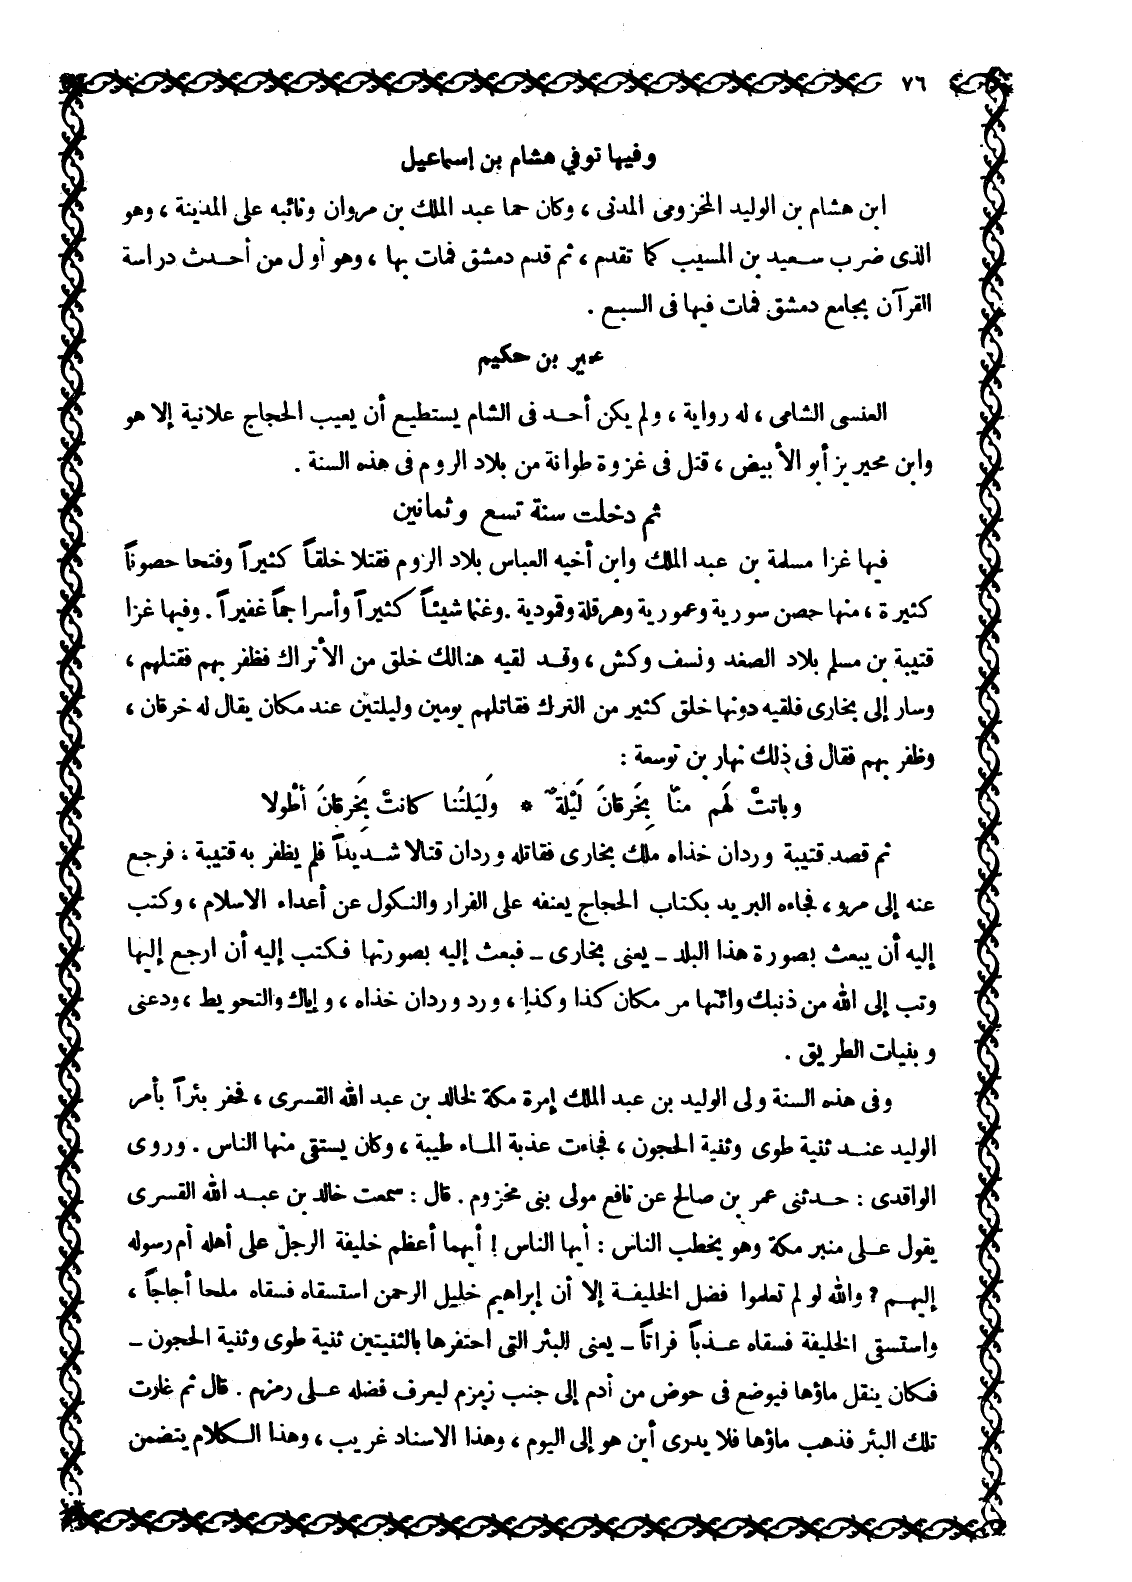 ٧٦
وفيها توفي هشام بن إسماعيل
ابن هشام بن الوليد المخزومى المدنى ، وكان حما عبد الملك بن مروان ونائبه على المدينة ، وهو
الذى ضرب سعيد بن المسيب كما تقدم ، ثم قدم دمشق فمات بها ، وهو أول من أحدث دراسة
القرآن بجامع دمشق فمات فيها فى السبع .
عمير بن حكيم
العنسى الشامى ، له رواية ، ولم يكن أحد فى الشام يستطيع أن يعيب الحجاج علانية إلا هو
وابن محيريز أبو الأبيض ، قتل فى غزوة طوانة من بلاد الروم فى هذه السنة .
ثم دخلت سنة تسع وثمانين
فيها غزا مسلمة بن عبد الملك وابن أخيه العباس بلاد الروم فقتلا خلقاً كثيراً وفتحا حصوناً
كثيرة ، منها حصن سورية وعمورية وهرقلة وقمودية . وغنما شيئاً كثيراً وأسرا جماً غفيراً . وفيها غزا
قتيبة بن مسلم بلاد الصغد ونسف وكش ، وقد لقيه هنالك خلق من الأتراك فظفر بهم فقتلهم ،
وسار إلى بخارى فلقيه دونها خلق كثير من الترك فقاتلهم يومين وليلتين عند مكان يقال له خرقان ،
وظفر بهم فقال فى ذلك نهار بن توسعة :
وباتتْ لَهم منّا بِخَرقانَ لَيْلة * ولَيَلتُنا كانتْ بِخَرقانَ أطْولا
ثم قصد قتيبة وردان خذاه ملك بخارى فقاتله وردان قتالا شديداً فلم يظفر به قتيبة ، فرجع
عنه إلى مرو ، فجاءه البريد بكتاب الحجاج يعنفه على الفرار والنكول عن أعداء الاسلام ، وكتب
إليه أن يبعث بصورة هذا البلد ـ يعنى بخارى ـ فبعث إليه بصورتها فكتب إليه أن ارجع إليها
وتب إلى الله من ذنبك وائتها من مكان كذا وكذا ، ورد وردان خذاه ، وإياك والتحويط ، ودعنى
وبنيات الطريق .
وفى هذه السنة ولى الوليد بن عبد الملك إمرة مكة لخالد بن عبد الله القسرى ، فحفر بئراً بأمر
الوليد عند ثنية طوى وثنية الحجون ، فجاءت عذبة الماء طيبة ، وكان يستقى منها الناس . وروى
الواقدى : حدثنى عمر بن صالح عن نافع مولى بنى مخزوم . قال : سمعت خالد بن عبد الله القسرى
يقول على منبر مكة وهو يخطب الناس : أيها الناس ! أيهما أعظم خليفة الرجل على أهله أم رسوله
إليهم ؟ والله لو لم تعلموا فضل الخليفة إلا أن إبراهيم خليل الرحمن استسقاه فسقاه ملحا أجاجاً ،
واستسقى الخليفة فسقاه عذباً فراتاً ـ يعنى البئر التى احتفرها بالثنيتين ثنية طوى وثنية الحجون ـ
فكان ينقل ماؤها فيوضع فى حوض من أدم إلى جنب زمزم ليعرف فضله على زمزم . قال ثم غارت
تلك البئر فذهب ماؤها فلا يدرى أين هو إلى اليوم ، وهذا الاسناد غريب ، وهذا الكلام يتضمن